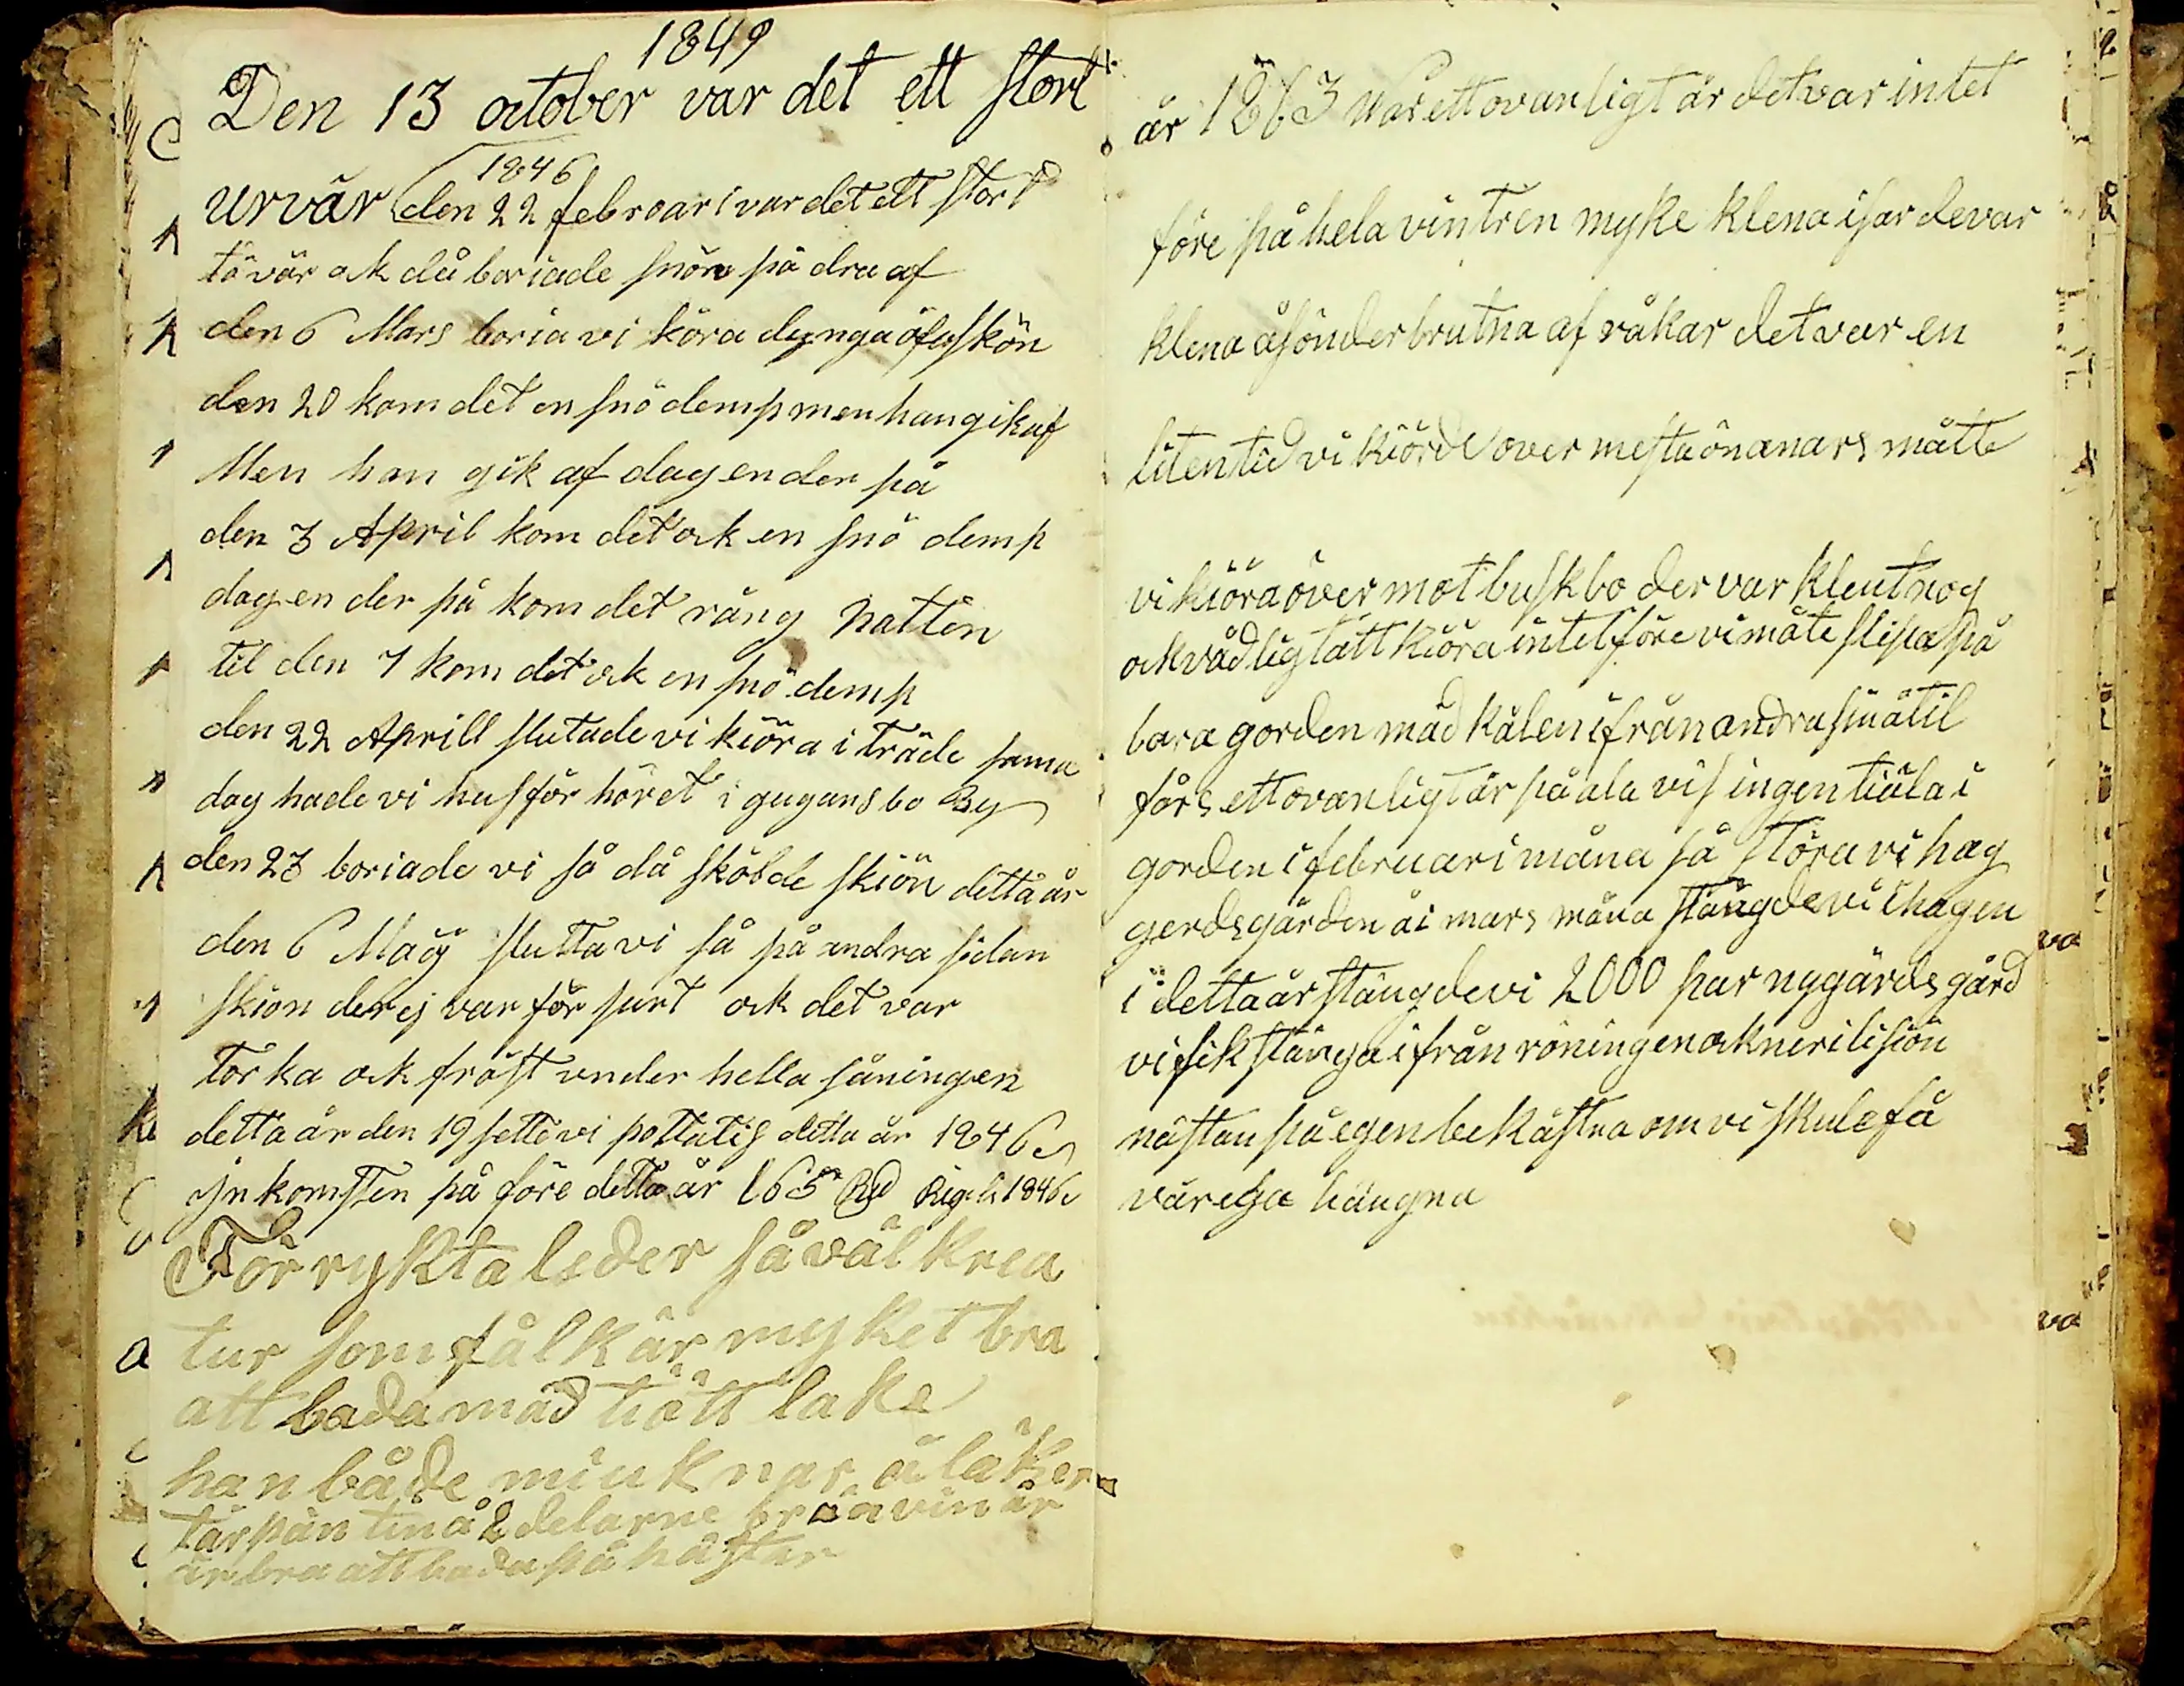 1849
Den 13 october var det ett stort
urvär
1846
den 22 febroari var det ett stort
tö vär ok då boriade snön på dra af
den 6 Mars boria vi köra dynga öfu skön
den 20 kom det en snö demp men han gik af
Men han gik af dagen der på
den 3 April kom det ok en snö demp
dagen der på kom det räng natten
til den 7 kom det ok en snö demp
den 22 Aprill slutade vi kiöra i träde sama
dag hade vi husför höret i gugans bo By
den 23 boriade vi så då skölde skiön detta år
den 6 Maÿ slutta vi så på andra sidan
skion der ej var för surt ok det var
torka ok fråst under hella såningen
detta år den 19 sette vi pottatis detta år 1846
jnkomsten på före detta år 165 Rd Rigels 1846
För rykta leder så väl krea
tur som fålk är myket bra
att bada mäd tiött lake
han både miuknar å läker
tärpäntin å 2 delarne brävin är
är bra att bada på hästar
år 1863 var ett ovanligt år det var intet
före på hela vintren myke klena isar de var
klena å sönderbrutna af råkar det var en
liten tid vi kiörde över mesta ön anars måtte
vi kiöra över mot buskbo der var klent nog
ok vådligt att kiöra intet före vi måte slipa på
bara gorden mäd kålen ifrån andra siöä til
fårs ett ovanligt år på ala vis ingen tiäla i
gorden i februari måna så störa vi hag
gerdsgården å i mars måna stängde vi i hagen
i detta år stängde vi 2000 par ny gärdsgård
vi fik stänga ifrån röningen ok neri lisiön
nästan på egen bekåstna om vi skule få
vår ega hängna